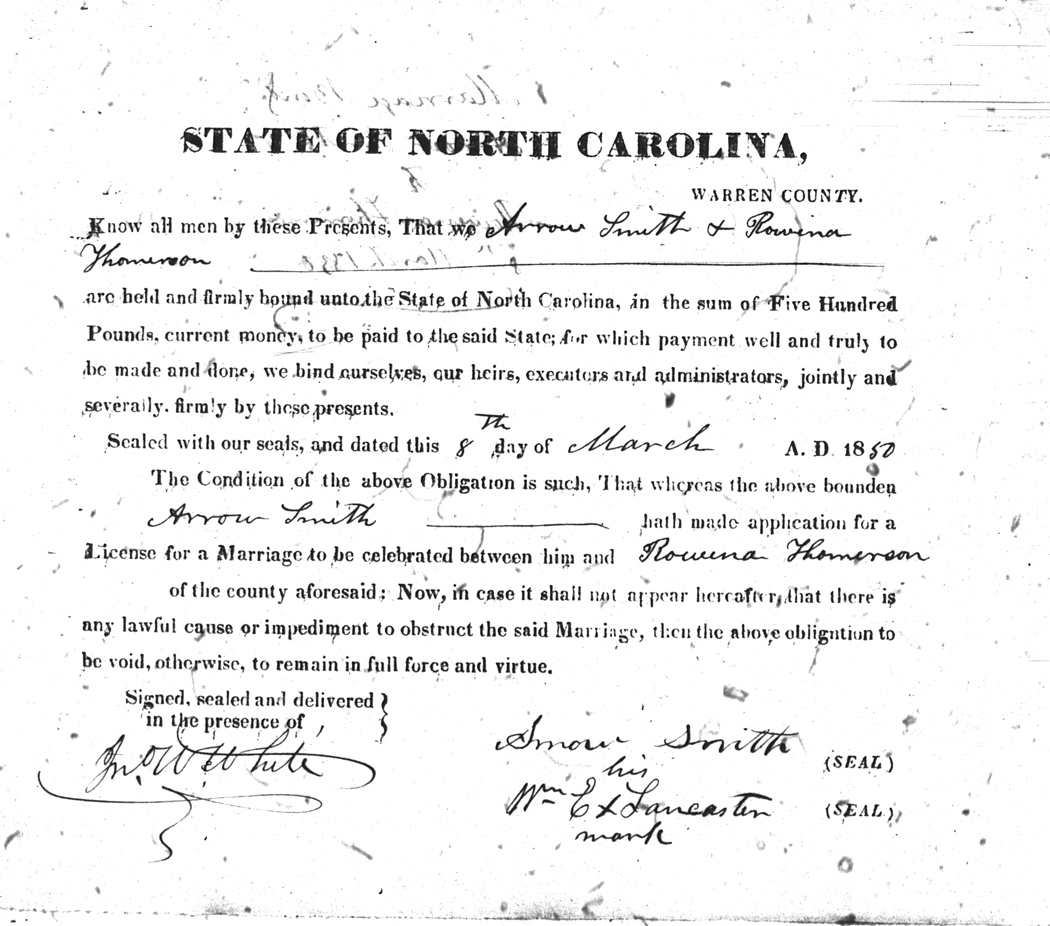 STATE OF NORTH CAROLINA,
WARREN COUNTY.
Know all men by these Presents, That we Arrow Smith & Rowena
Thomerson
are held and firmly bound unto the State of North Carolina, in the sum of Five Hundred
Pounds, current money, to be paid to the said State; for which payment well and truly to
be made and done, we bind ourselves, our heirs, executors and administrators, jointly and
severally. firmly by these presents.
Sealed with our seals, and dated this 8th day of March A. D. 1850
The Condition of the above Obligation is such, That whereas the above bounden
Arrow Smith hath made application for a
License for a Marriage to be celebrated between him and Rowena Thomerson
of the county aforesaid; Now, in case it shall not appear hereafter, that there is
any lawful cause or impediment to obstruct the said Marriage, then the above obligation to
be void, otherwise, to remain in full force and virtue.
Signed, sealed and delivered
in the presence of
Jno. W. White
Arrow Smith (SEAL)
his
Wm E x Lancaster (SEAL)
mark